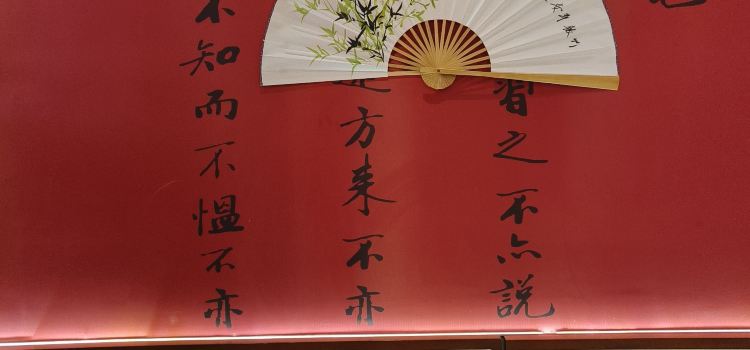 習之不亦説
方来不亦
不知而不愠不亦